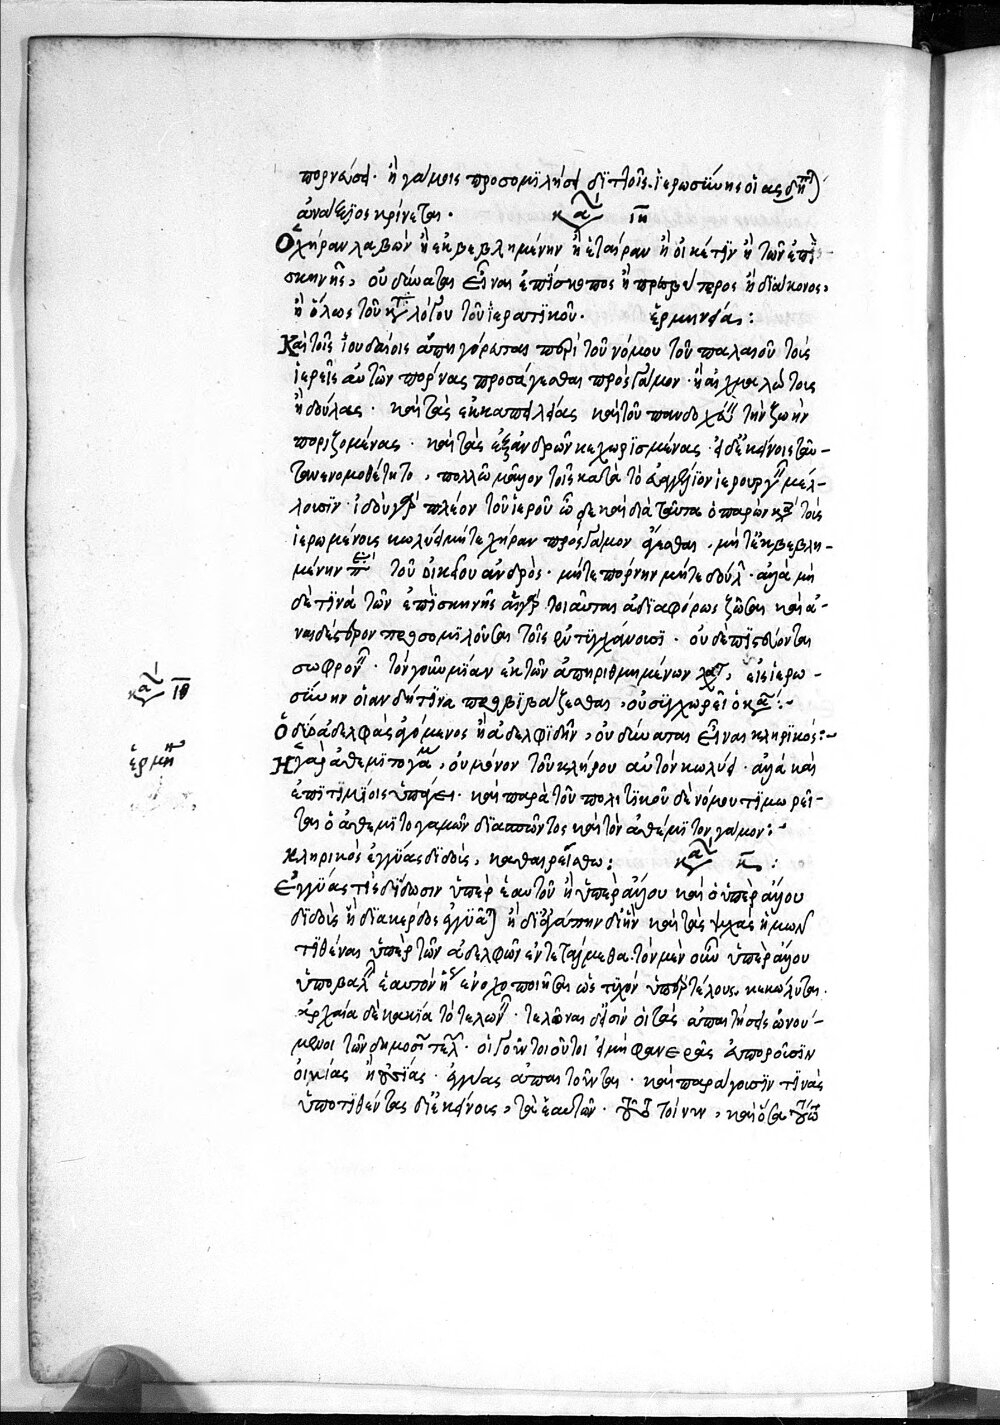 πορνεύσει. ἢ γάμοις προσομιλήσει διτλοῖς. ἱερωσύνης οἱασδήπ
ἀνάξιος κρίνεται. κα ιη
Ὁ χήραν λαβὼν ἢ ἐκβεβλημένην ἢ ἑταίραν ἢ οἰκέτιν ἢ τῶν ἐπὶ
σκηνῆς, οὐ δύναται εἶναι ἐπίσκοπος ἢ πρεσβύτερος ἢ διάκονος,
ἢ ὅλως τοῦ κατλόγου τοῦ ἱερατικοῦ. ἑρμηνεία:
Καὶ τοῖς ἰουδαίοις ἀπηγόρευται περὶ τοῦ νόμου τοῦ παλαιοῦ τοῖς
ἱερεῖς αὐτῶν πόρνας προσάγεσθαι πρὸς γάμον. ἢ αἰχμαλώτους
ἢ δούλας. καὶ τὰς ἐκ καπηλείας καὶ τοῦ πανδοχεύ τὴν ζωὴν
ποριζομένας. καὶ τὰς ἐξ ἀνδρῶν κεχωρισμένας. εἰ δὲ ἐκείνοις ταῦ-
τα νενομοθέτητο, πολλῷ μᾶλλον τοῖς κατὰ τὸ εὐαγγέλιον ἱερουργ μέλ-
λουσιν. ἰδοὺ γὰρ πλέον τοῦ ἱεροῦ ὧδε καὶ διὰ ταῦτα ὁ παρὼν κα τοῖς
ἱερωμένοις κωλύει μήτε χήραν πρὸς γάμον ἄγεσθαι, μήτε ἐκβεβλη-
μένην τοῦ οἰκείου ἀνδρὸς. μήτε πόρνην μήτε δούλ. ἀλλὰ μὴ
δὲ τινὰ τῶν ἐπὶ σκηνῆς αἳ γὰρ τοιαῦται ἀδιαφόρως ζῶσαι καὶ ἀ-
ναιδέστερον προσομιλοῦσαι τοῖς ἐντυγχάνουσι. οὐδὲ πιστεύονται
σωφρον. τὸν γοῦν μίαν ἐκ τῶν ἀπηριθμημένων λαχ, εἰς ἱερω-
σύνην οἱανδήτινα προβιβάζεσθαι, οὐ συγχωρεῖ ὁ κα:-
κα ιθ
Ὁ δύο ἀδελφὰς ἀγόμενος ἢ ἀδελφιδῆν, οὐ δύναται εἶναι κληρικός:-
ἑρμη
Ἡ γὰρ ἀθεμιτογαμ, οὐ μόνον τοῦ κλήρου αὐτὸν κωλύει. ἀλλὰ καὶ
ἐπιτιμίοις ὑπάγει. καὶ παρὰ τοῦ πολιτικοῦ δὲ νόμου τιμωρεῖ-
ται ὁ ἀθεμιτογαμῶν διασπῶντος καὶ τὸν ἀθέμιτον γάμον:-
κληρικὸς ἐγγύας διδοὺς, καθαιρείσθω: κα κ:
Ἐγγύας τις δίδωσιν ὑπὲρ ἑαυτοῦ ἢ ὑπὲρ ἄλλου καὶ ὁ ὑπὲρ ἄλλου
διδοὺς ἢ διὰ κέρδος ἐγγυᾶται ἢ δι' ἀγάπην δι' ἣν καὶ τὰς ψυχὰς ἡμῶν
τιθέναι ὑπὲρ τῶν ἀδελφῶν ἐντετάλμεθα. τὸν μὲν οὖν ὑπὲρ ἄλλου
ὑποβαλ ἑαυτὸν ἢ ἐνοχοποιῆσαι ὡς τυχὸν ὑπὲρ τέλους. κεκώλυται.
ἀρχαία δὲ κακία τὸ τελων. τελῶναι δ' εἰσὶν οἱ τὰς ἀπαιτήσεις ὠνού-
μενοι τῶν δημοσί τελ. οἱ γοῦν τοιοῦτοι εἰ μὴ φανερᾶς εὐποροῦσιν
οἰκίας ἢ οὐσίας. ἐγγύας ἀπαιτοῦνται. καὶ παράγουσιν τινὰς
ὑποτιθέντας δι' ἐκείνοις, τὰ ἑαυτῶν. τοίνυν, καὶ ὅσα